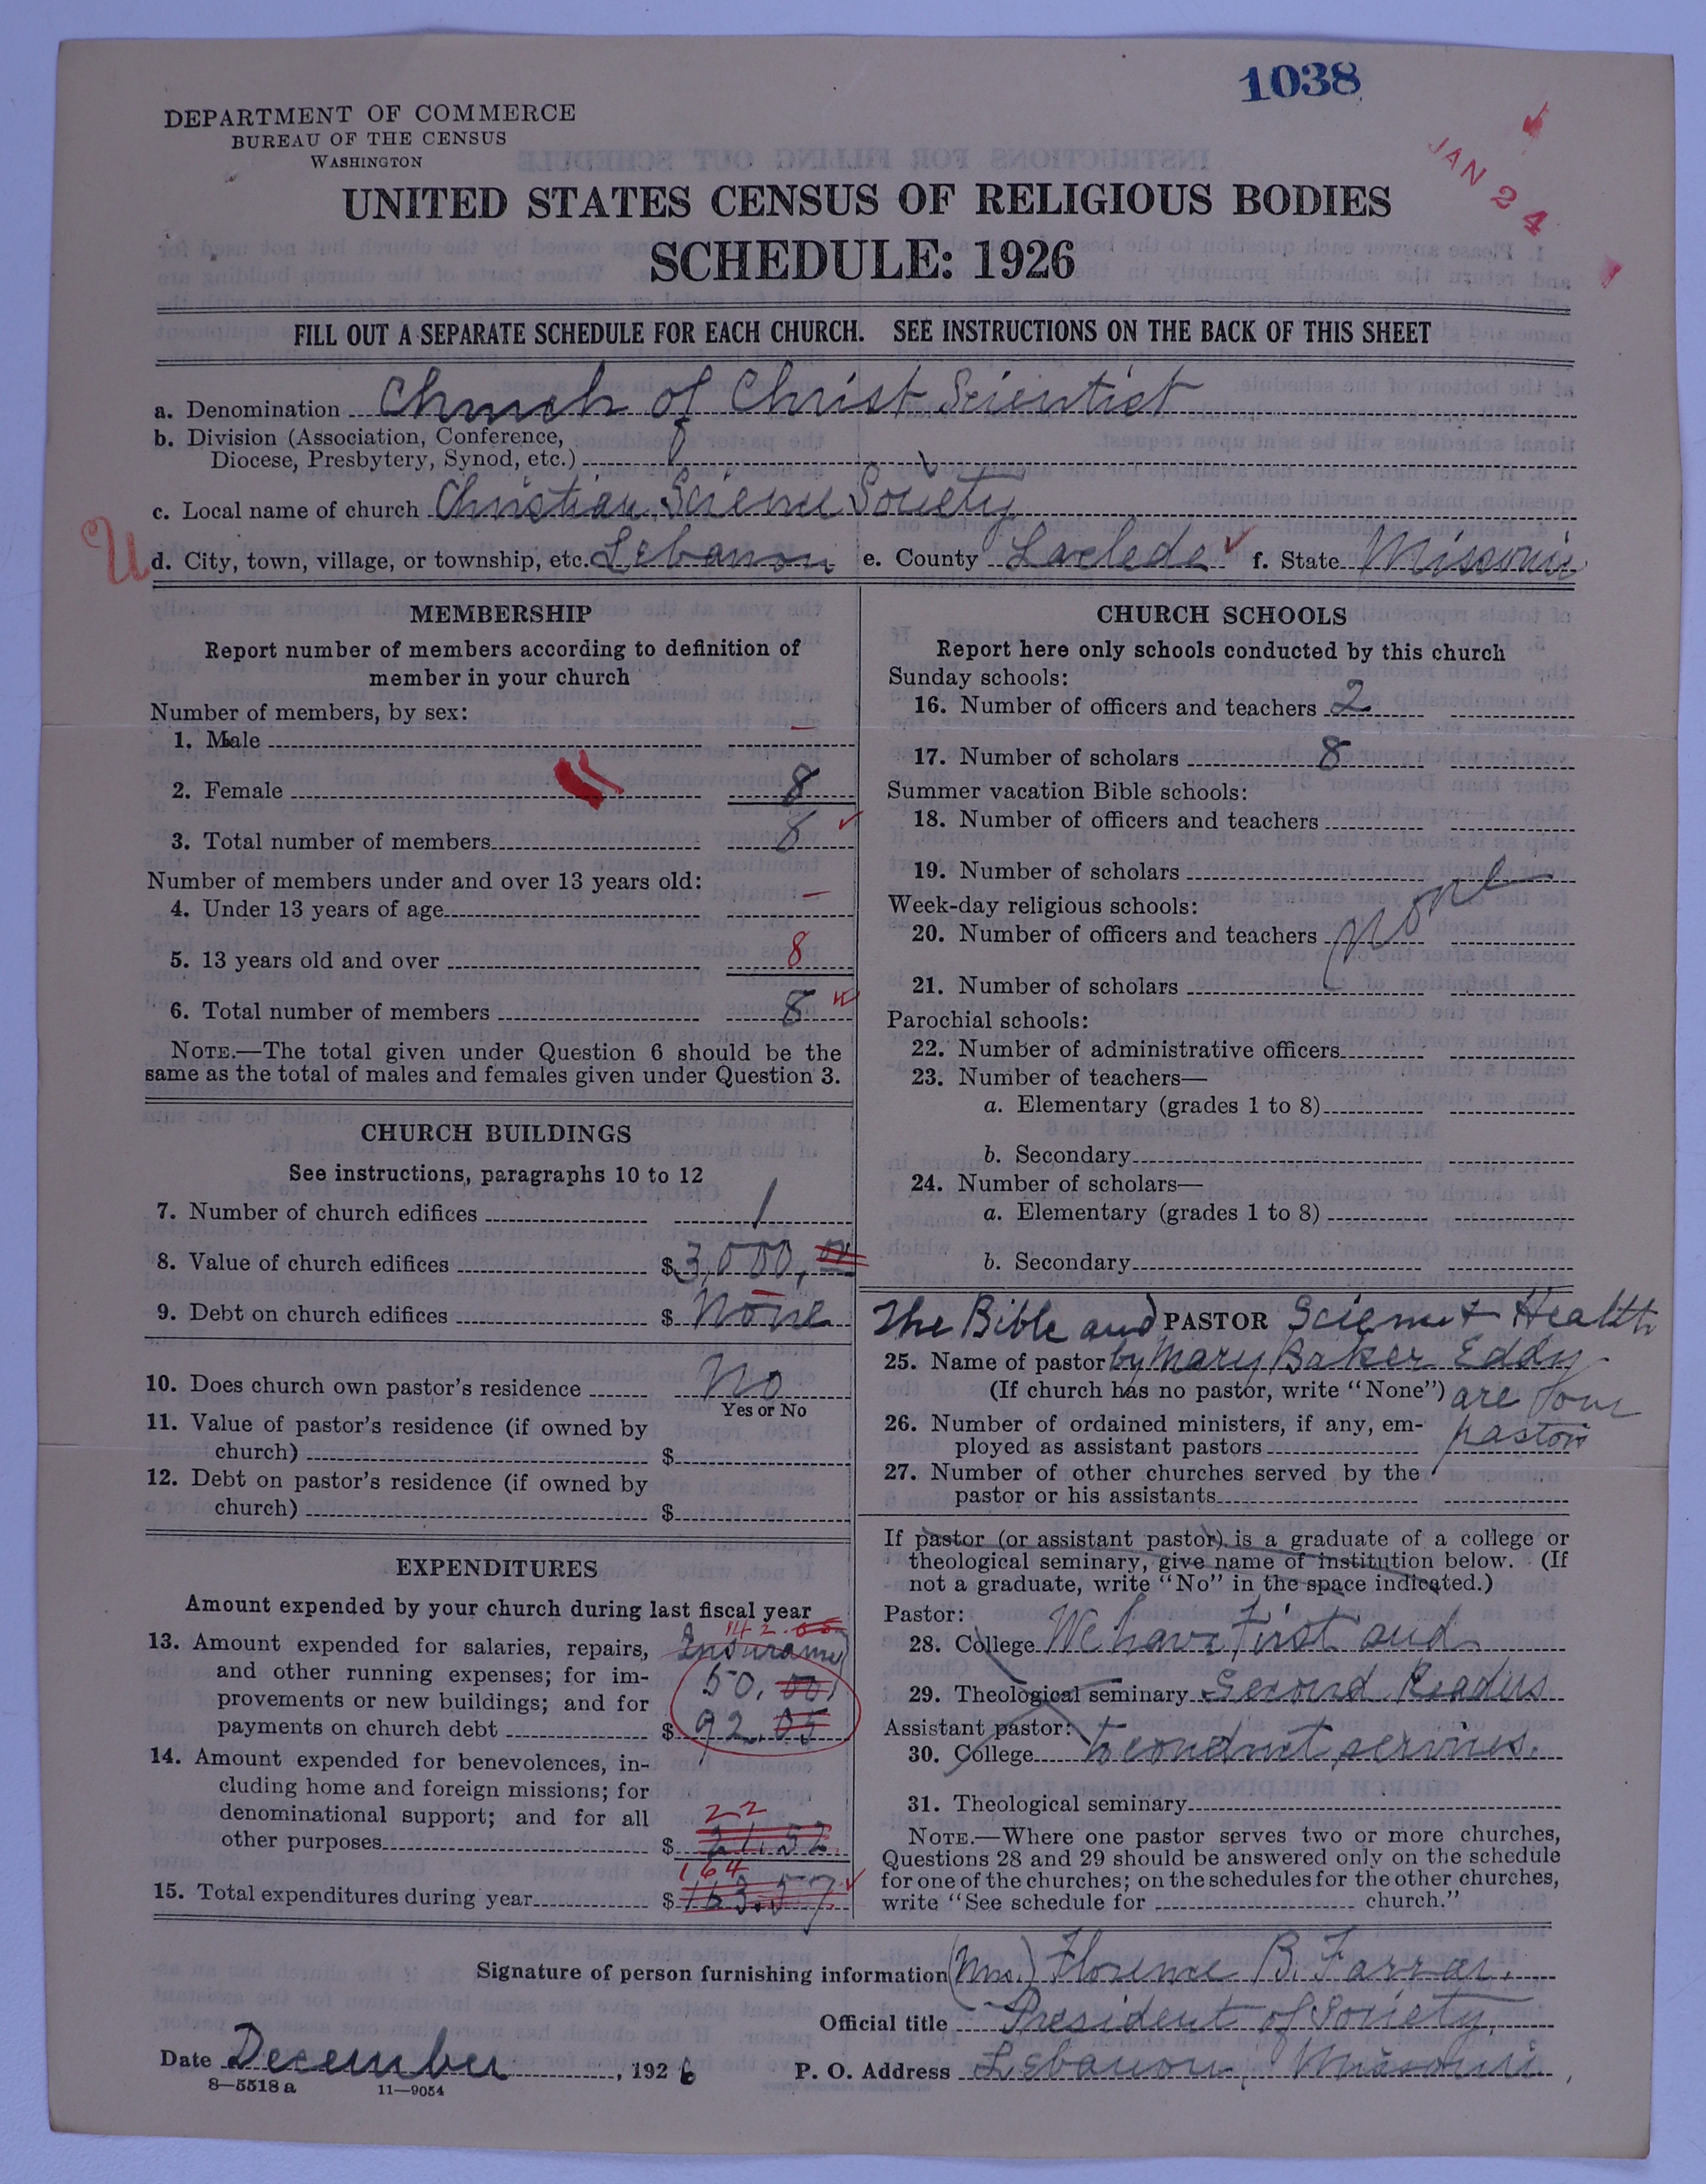 1038
JAN 24
DEPARTMENT OF COMMERCE
BUREAU OF THE CENSUS
WASHINGTON
UNITED STATES CENSUS OF RELIGIOUS BODIES
SCHEDULE: 1926
FILL OUT A SEPARATE SCHEDULE FOR EACH CHURCH. SEE INSTRUCTIONS ON THE BACK OF THIS SHEET
a. Denomination Church of Christ Scientist
b. Division (Association, Conference,
Diocese, Presbytery, Synod, etc.)
c. Local name of church Christian Science Society
U d. City, town, village, or township, etc. Lebanon e. County Laclede f. State Missouri
MEMBERSHIP
Report number of members according to definition of
member in your church
Number of members, by sex:
1. Male –
2. Female 8
3. Total number of members 8
Number of members under and over 13 years old:
4. Under 13 years of age –
5. 13 years old and over 8
6. Total number of members 8
NOTE.—The total given under Question 6 should be the
same as the total of males and females given under Question 3.
CHURCH BUILDINGS
See instructions, paragraphs 10 to 12
7. Number of church edifices 1
8. Value of church edifices $3,000.00
9. Debt on church edifices $ None
10. Does church own pastor's residence No
Yes or No
11. Value of pastor's residence (if owned by
church) $
12. Debt on pastor's residence (if owned by
church) $
EXPENDITURES
Amount expended by your church during last fiscal year
142.05
13. Amount expended for salaries, repairs, Insurance
and other running expenses; for im- 50.00
provements or new buildings; and for
payments on church debt $ 92.05
14. Amount expended for benevolences, in-
cluding home and foreign missions; for
denominational support; and for all 22
other purposes $ 21.52
164
15. Total expenditures during year $163.57
CHURCH SCHOOLS
Report here only schools conducted by this church
Sunday schools:
16. Number of officers and teachers 2
17. Number of scholars 8
Summer vacation Bible schools:
18. Number of officers and teachers
19. Number of scholars
Week-day religious schools:
20. Number of officers and teachers None
21. Number of scholars
Parochial schools:
22. Number of administrative officers
23. Number of teachers—
a. Elementary (grades 1 to 8)
b. Secondary
24. Number of scholars—
a. Elementary (grades 1 to 8)
b. Secondary
The Bible and PASTOR Science & Health
25. Name of pastor by Mary Baker Eddy
(If church has no pastor, write "None") are our
26. Number of ordained ministers, if any, em- pastor
ployed as assistant pastors
27. Number of other churches served by the
pastor or his assistants
If pastor (or assistant pastor) is a graduate of a college or
theological seminary, give name of institution below. (If
not a graduate, write "No" in the space indicated.)
Pastor:
28. College We have First and
29. Theological seminary Second Readers
Assistant pastor:
30. College to conduct services.
31. Theological seminary
NOTE.—Where one pastor serves two or more churches,
Questions 28 and 29 should be answered only on the schedule
for one of the churches; on the schedules for the other churches,
write "See schedule for church."
Signature of person furnishing information (Mrs.) Florence B. Farrar.
Official title President of Society.
Date December, 1926 P. O. Address Lebanon, Missouri.
8—5518 a 11—9054